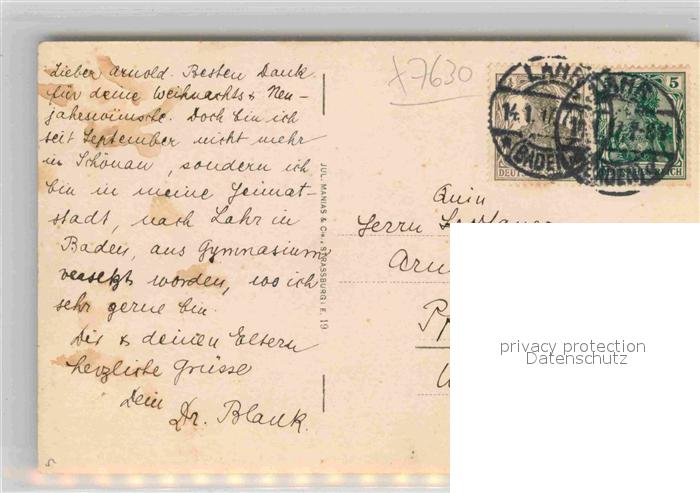 Lieber Arnold. Besten Dank
für deine Weihnachts & Neu-
jahrswünsche. Doch bin ich
seit September nicht mehr
in Schönau, sondern ich
bin in meine Heimat-
stadt, nach Lahr in
Baden, ans Gymnasium
versetzt worden, wo ich
sehr gerne bin.
Dir & deinen Eltern
herzliche Grüsse
Dein
Dr. Blank.
x7630
LAHR
14.1.17
(BADEN)
LAHR
5
JUL. MANIAS & Cie., STRASSBURG i. E. 19
Herrn
privacy protection
Datenschutz